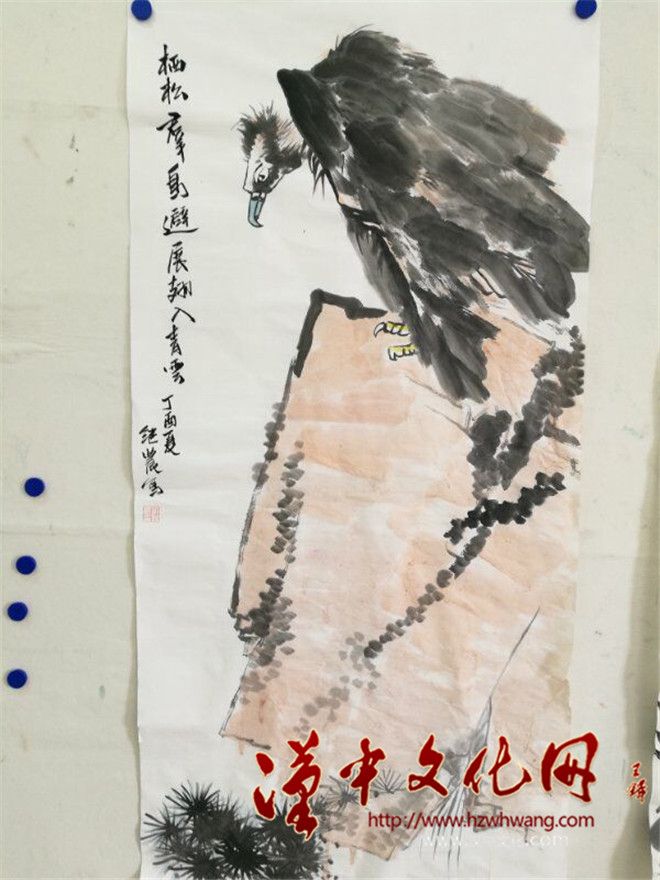 栖松群鸟避展翅入青雲
丁酉夏
继农写
汉中文化网
http://www.hzwhwang.com